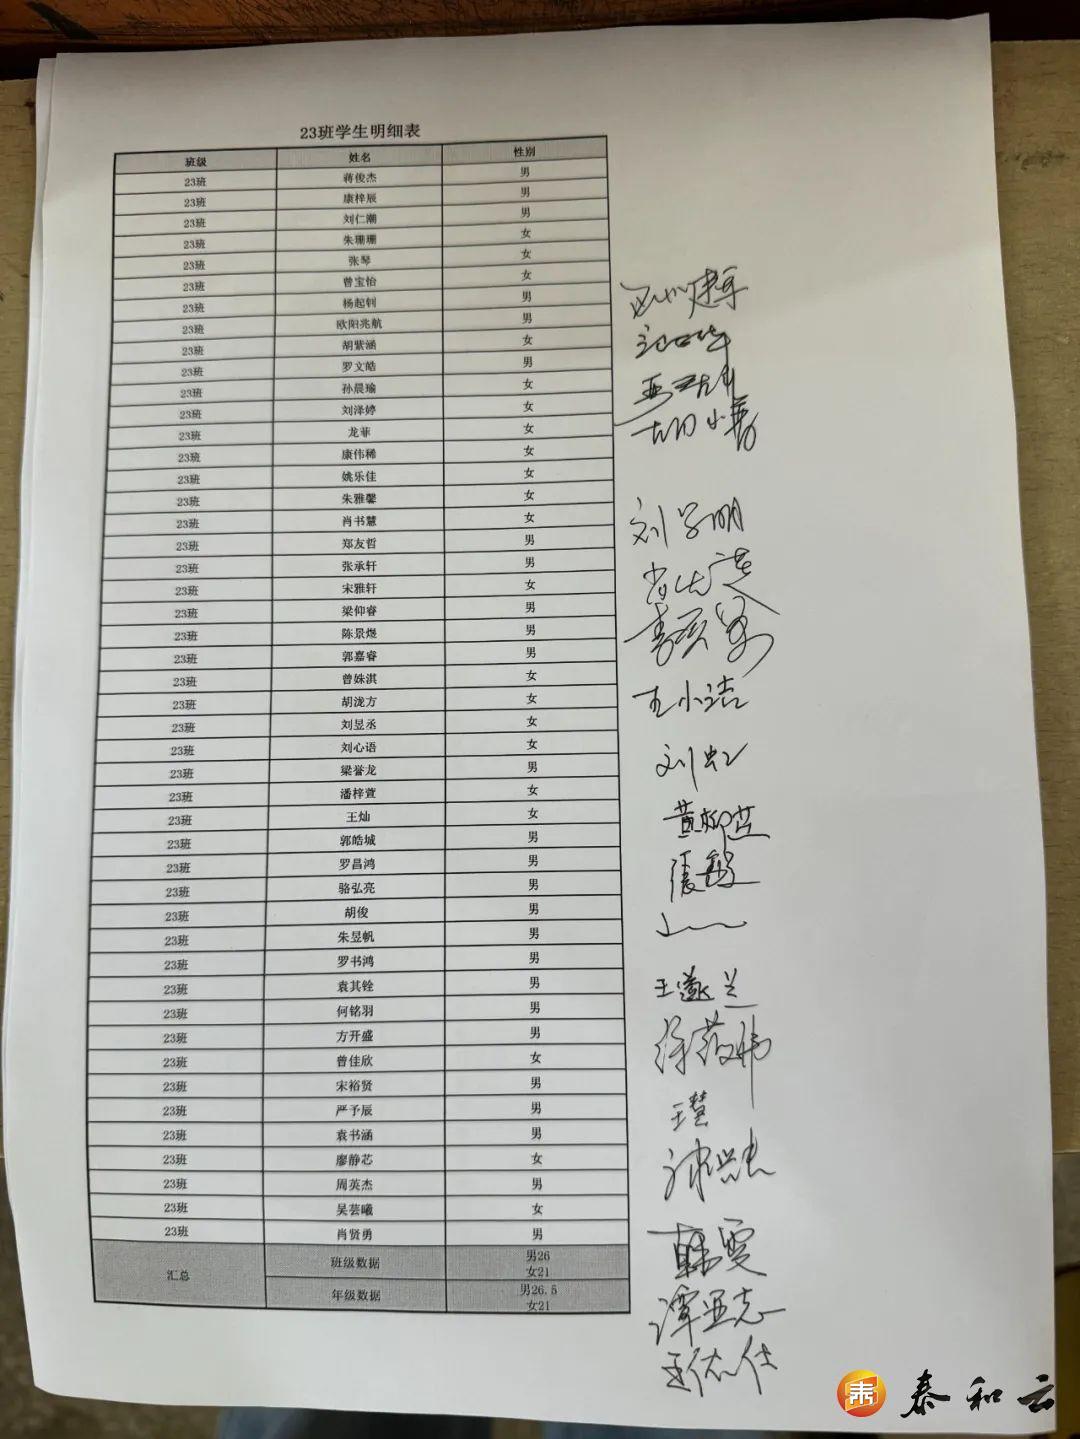 23班学生明细表
班级 姓名 性别
23班 蒋俊杰 男
23班 康梓辰 男
23班 刘仁潮 男
23班 朱珊珊 女
23班 张琴 女
23班 曾宝怡 女
23班 杨起钊 男
23班 欧阳兆航 男
23班 胡紫涵 女
23班 罗文皓 男
23班 孙晨瑜 女
23班 刘泽婷 女
23班 龙菲 女
23班 康伟稀 女
23班 姚乐佳 女
23班 朱雅馨 女
23班 肖书慧 女
23班 郑友哲 男
23班 张承轩 男
23班 宋雅轩 女
23班 梁仰睿 男
23班 陈景煜 男
23班 郭嘉睿 男
23班 曾姝淇 女
23班 胡泷方 女
23班 刘昱丞 女
23班 刘心语 女
23班 梁誉龙 男
23班 潘梓萱 女
23班 王灿 女
23班 郭皓城 男
23班 罗昌鸿 男
23班 骆弘亮 男
23班 胡俊 男
23班 朱昱帆 男
23班 罗书鸿 男
23班 袁其铨 男
23班 何铭羽 男
23班 方开盛 男
23班 曾佳欣 女
23班 宋裕贤 男
23班 严予辰 男
23班 袁书涵 男
23班 廖静芯 女
23班 周英杰 男
23班 吴芸曦 女
23班 肖贤勇 男
汇总 班级数据 男26
女21
年级数据 男26.5
女21
刘学明
王小洁
刘虹
黄柳芸
韩雯
谭亚志
泰和云